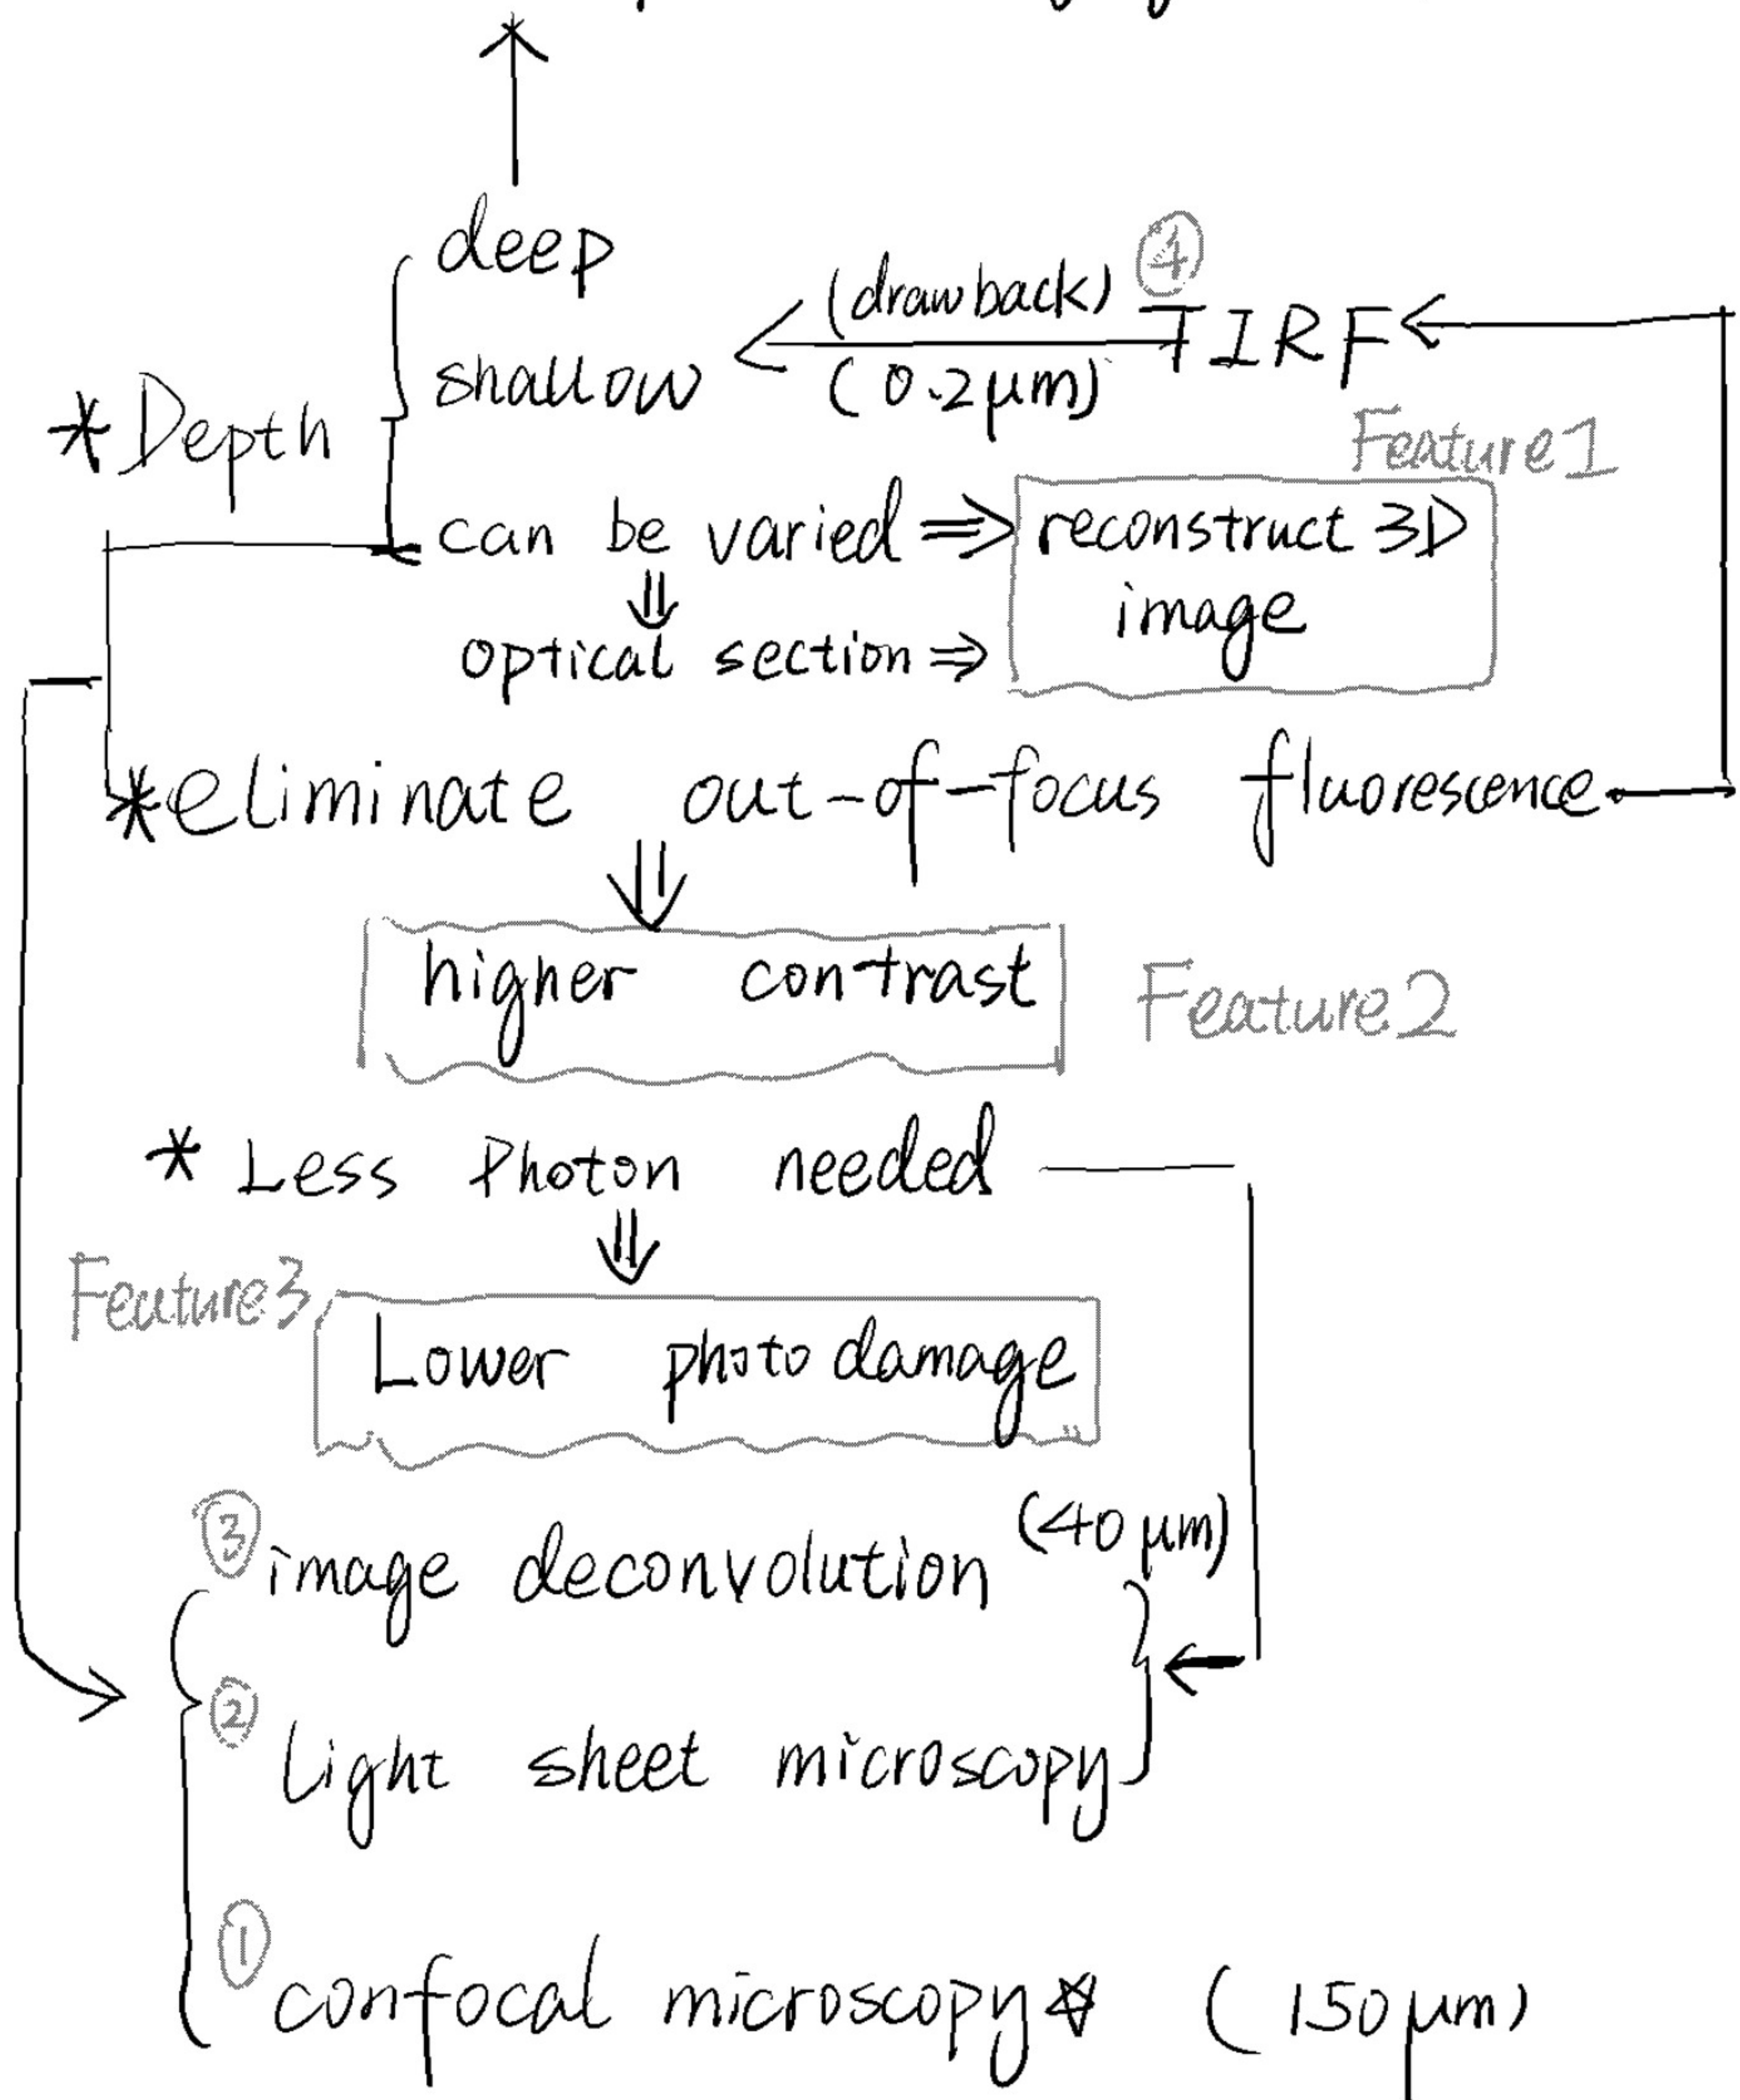 deep
(drawback) ④
shallow TIRF
(0.2μm)
*Depth
Feature1
can be varied ⇒ reconstruct 3D
image
optical section ⇒
*eliminate out-of-focus fluorescence
higher contrast
Feature2
* Less Photon needed
Feature3
Lower photo damage
③ image deconvolution (40 μm)
② Light sheet microscopy
① confocal microscopy☆ (150μm)